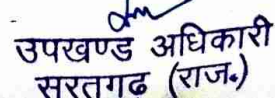 उपखण्ड अधिकारी
सरतगढ (राज.)